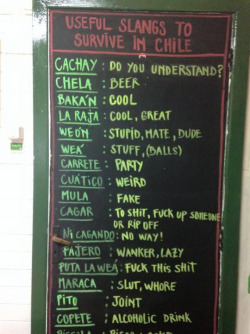 USEFUL SLANGS TO
SURVIVE IN CHILE
CACHAY : DO YOU UNDERSTAND?
CHELA : BEER
BAKA'N : COOL
LA RAJA : COOL, GREAT
WEO'N : STUPID, MATE, DUDE
WEA' : STUFF, (BALLS)
CARRETE : PARTY
CUÁTICO : WEIRD
MULA : FAKE
CAGAR : TO SHIT, FUCK UP SOMEONE
OR RIP OFF
NI CAGANDO : NO WAY!
PAJERO : WANKER, LAZY
PUTA LA WEÁ : FUCK THIS SHIT
MARACA : SLUT, WHORE
PITO : JOINT
COPETE : ALCOHOLIC DRINK